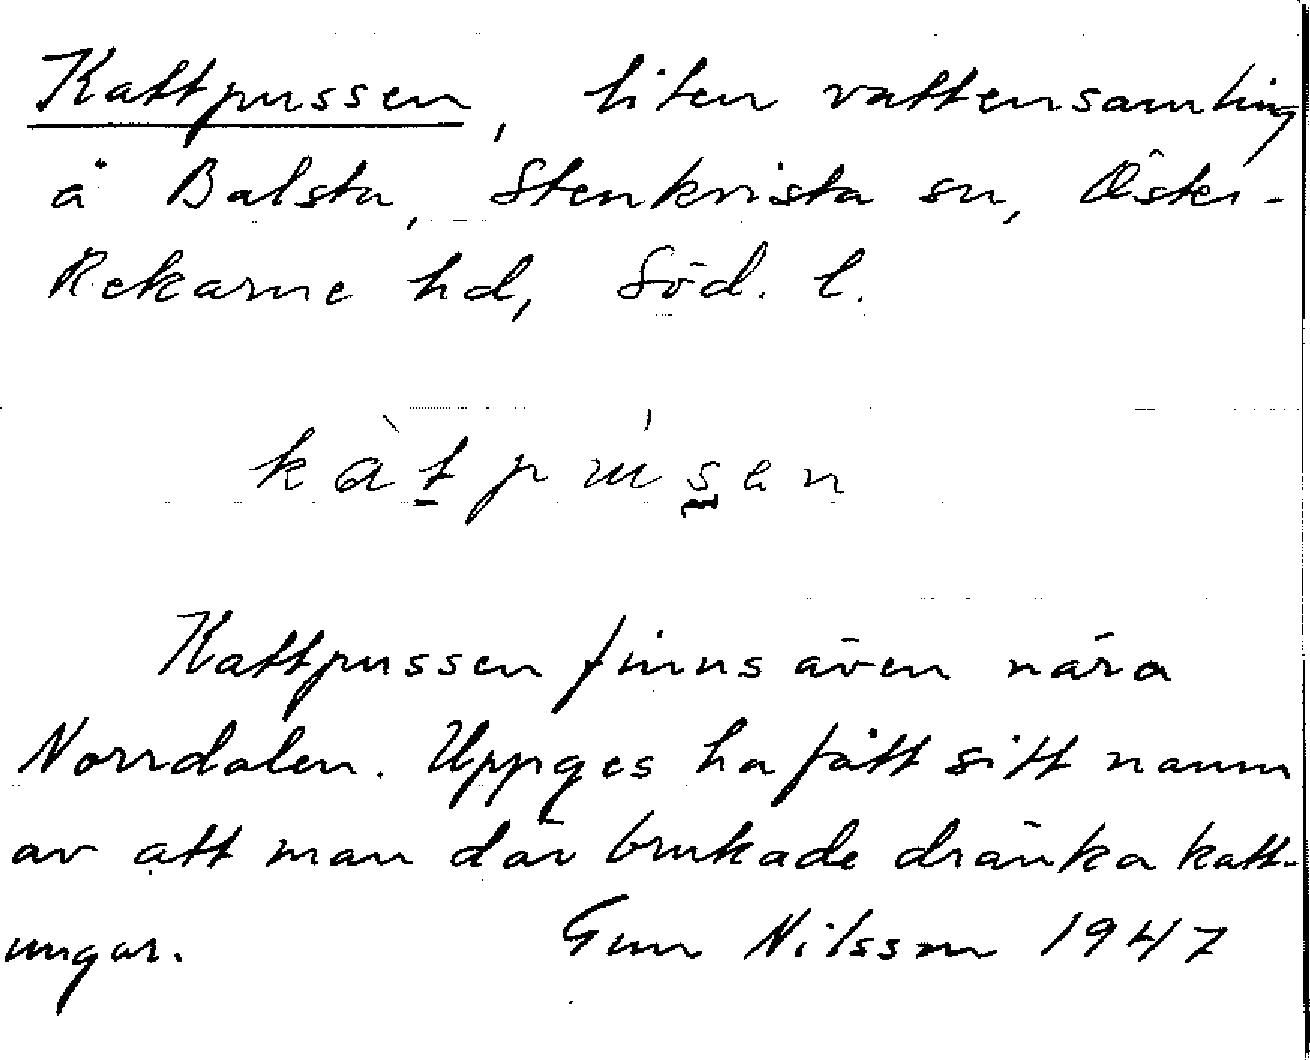 Kattpussen, liten vattensamling
å Balsta, Stenkvista sn, Öster-
Rekarne hd, Söd. l.
kàtpusen
Kattpussen finns även nära
Norrdalen. Uppges ha fått sitt namn
av att man där brukade dränka katt-
ungar. Gun Nilsson 1947